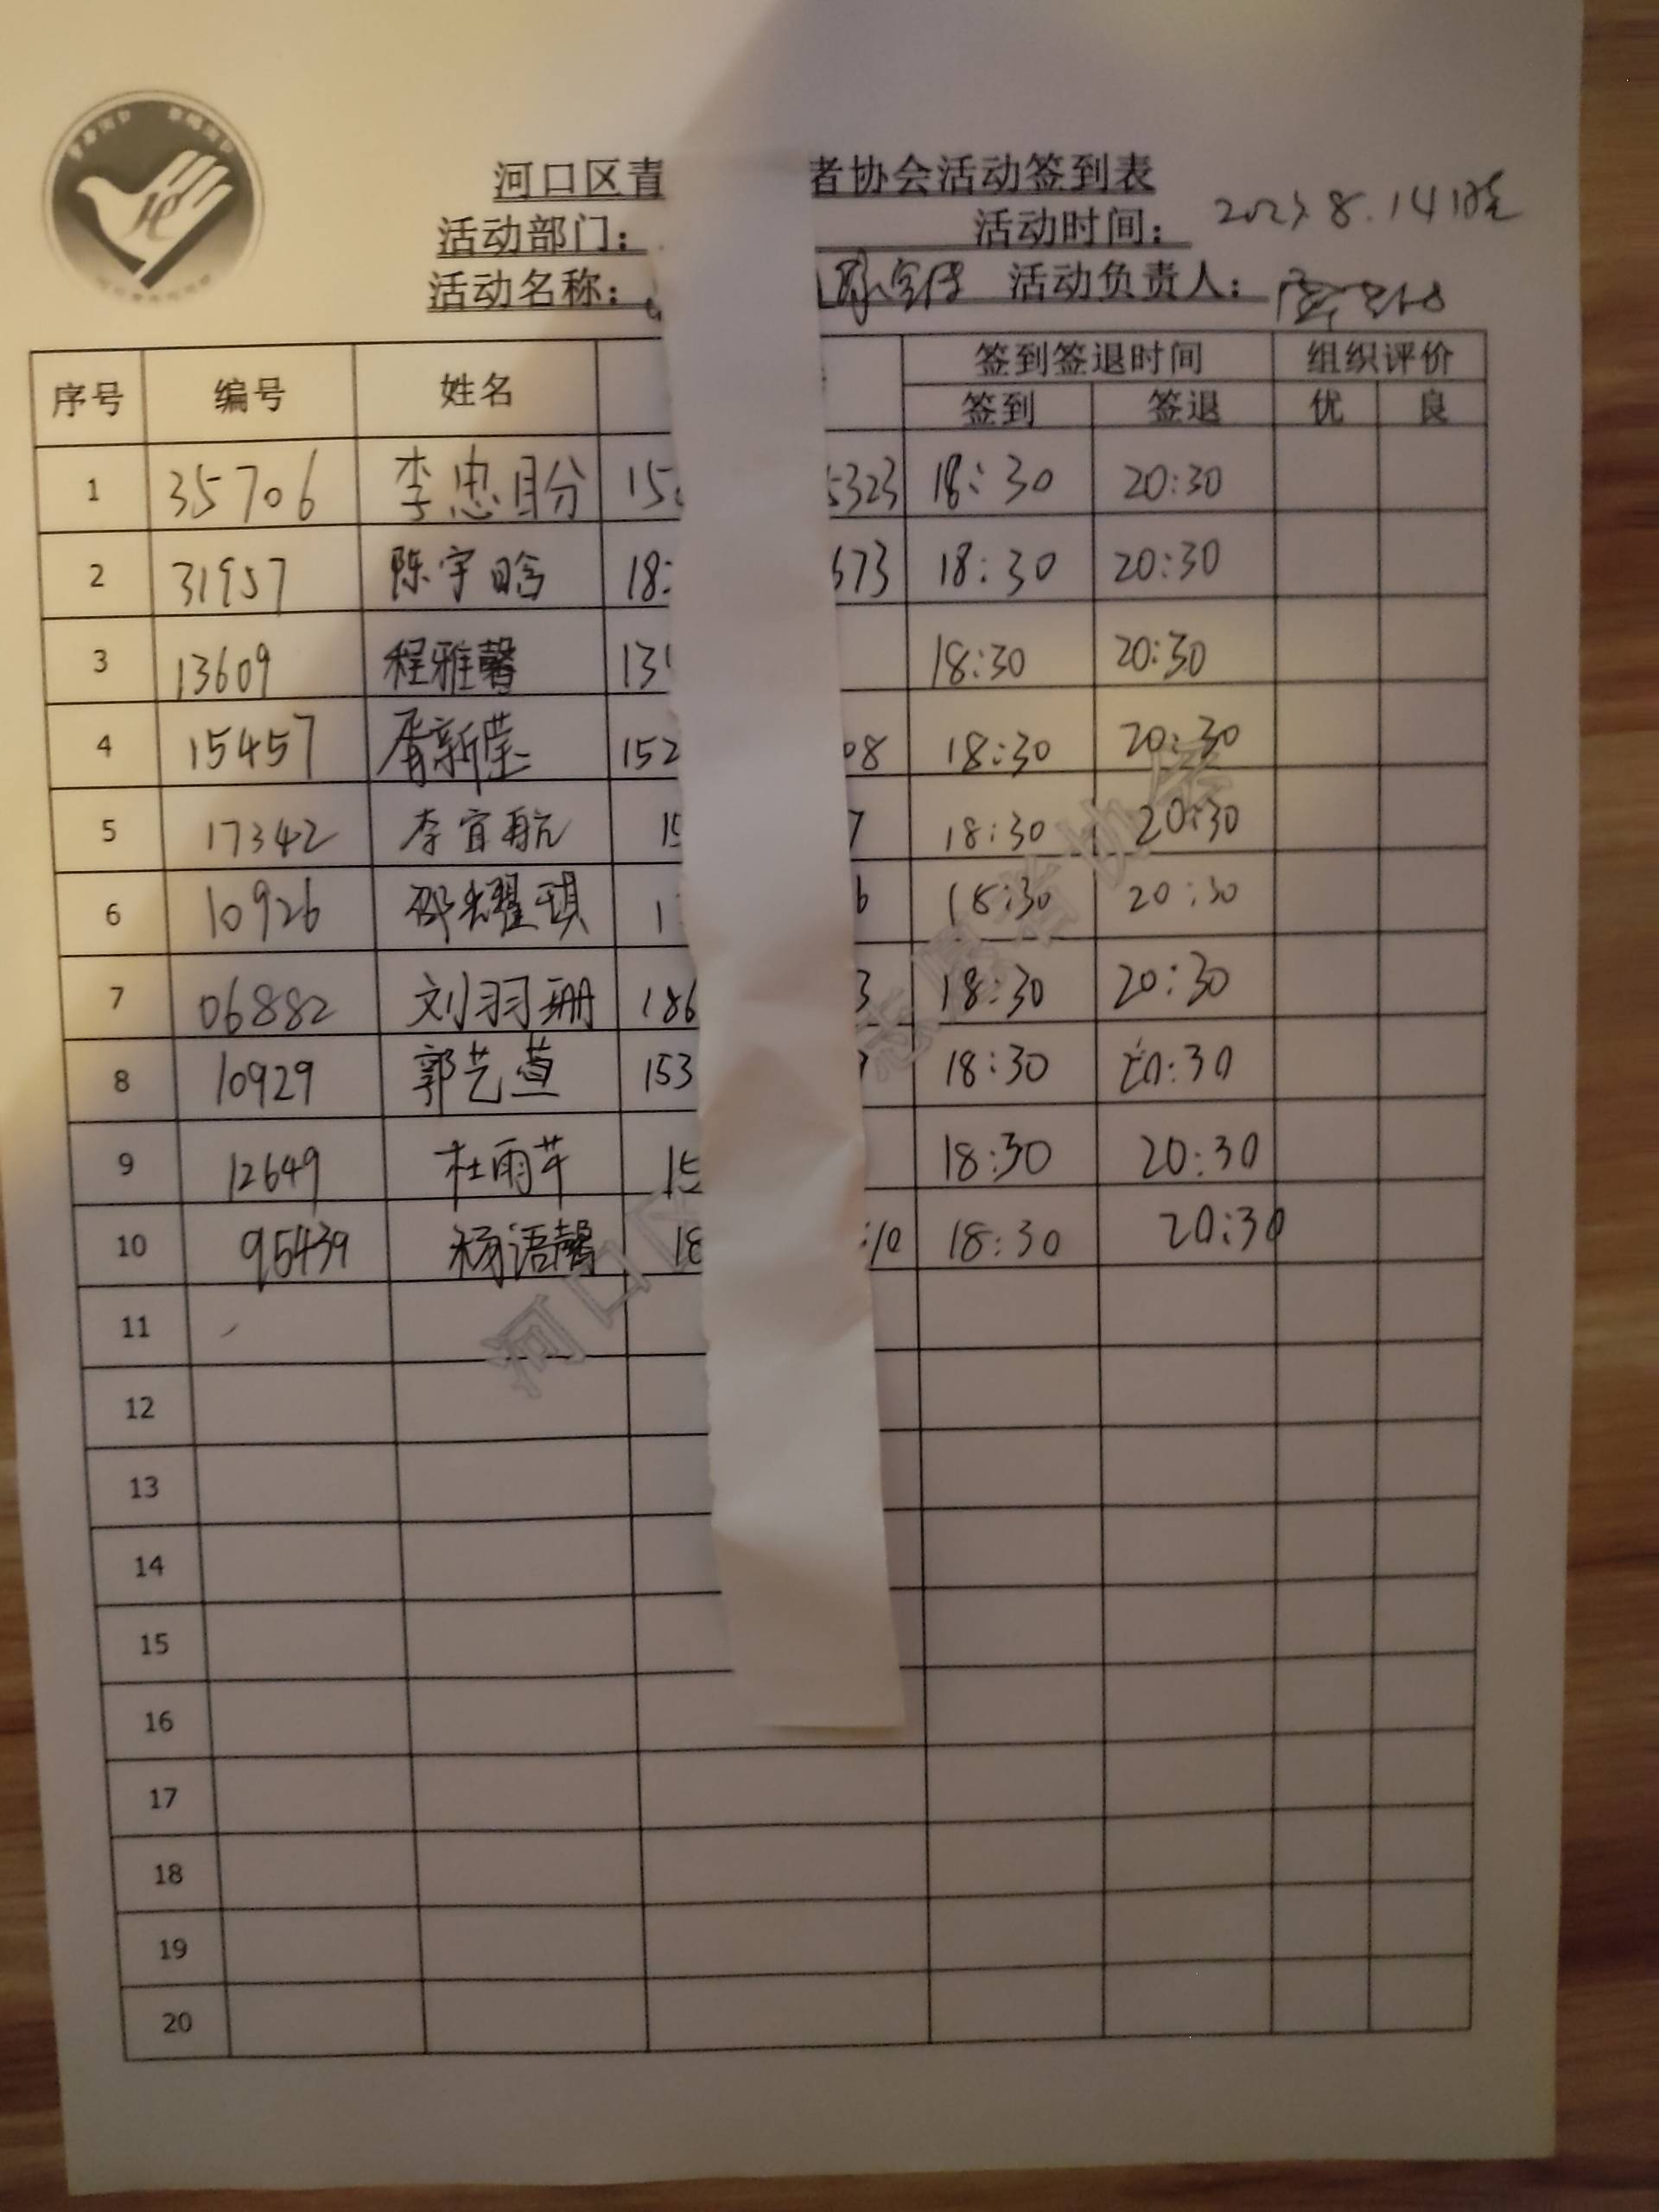 河口区青 者协会活动签到表
活动部门： 活动时间： 2023.8.14晚
活动名称： 活动负责人：
序号 编号 姓名 签到签退时间 组织评价
签到 签退 优 良
1 35706 李忠盼 15 5323 18:30 20:30
2 31957 陈宇晗 18 673 18:30 20:30
3 13609 程雅馨 13 18:30 20:30
4 15457 胥新莹 152 08 18:30 20:30
5 17342 李宜航 15 7 18:30 20:30
6 10926 邵耀琪 1 6 18:30 20:30
7 06882 刘羽珊 186 3 18:30 20:30
8 10929 郭艺萱 153 18:30 20:30
9 12649 杜雨芊 15 18:30 20:30
10 95439 杨语馨 18 10 18:30 20:30
11
12
13
14
15
16
17
18
19
20
河口区 志愿者协会